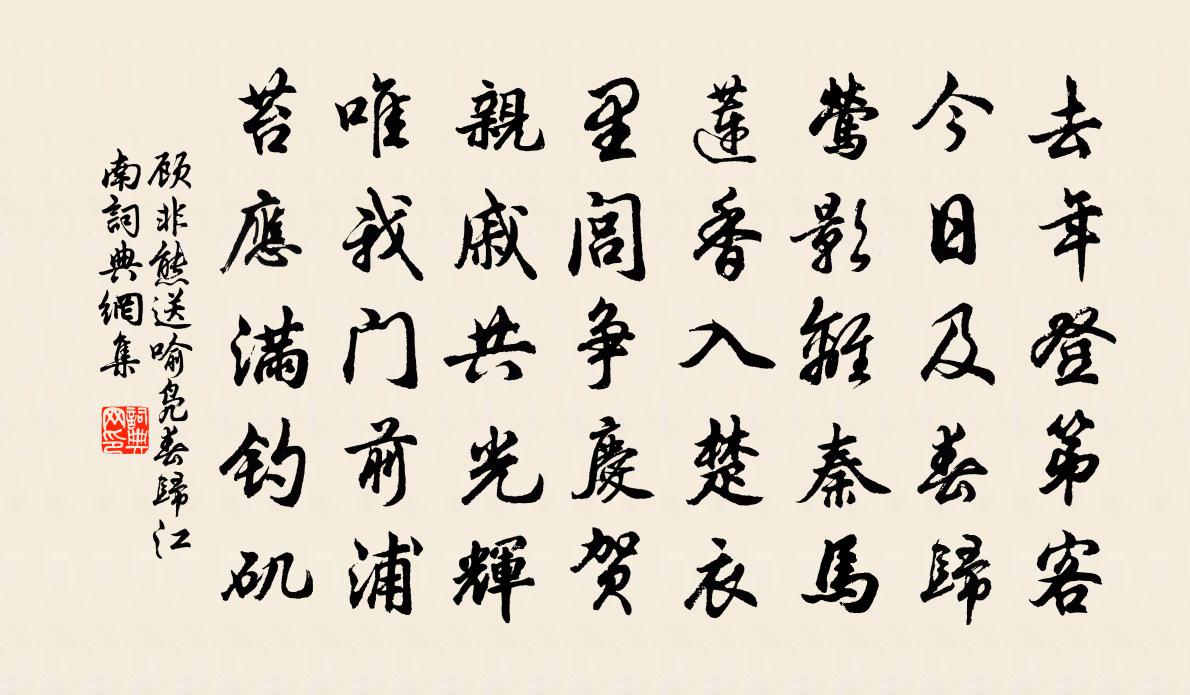 去年登第客
今日及春歸
鶯影離秦馬
蓮香入楚衣
里閭爭慶賀
親戚共光輝
唯我门前浦
苔應滿釣矶
顾非熊送喻凫春歸江
南詞典網集
詞典
网印